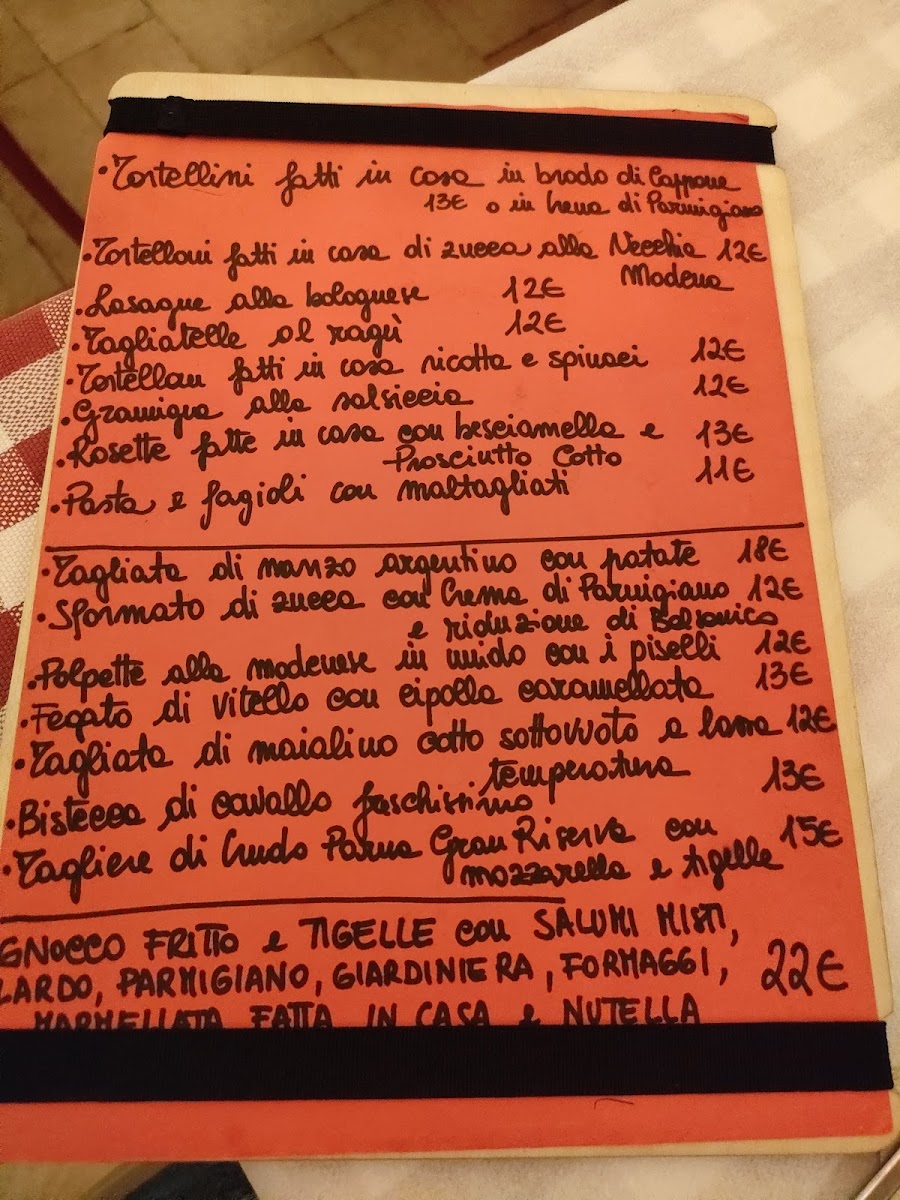 • Tortellini fatti in casa in brodo di Cappone
13€ o in Crema di Parmigiano
• Tortelloni fatti in casa di zucca alla Vecchia 12€
Modena
• Lasagne alla bolognese 12€
• Tagliatelle al ragù 12€
• Tortelloni fatti in casa ricotta e spinaci 12€
• Gramigna alla salsiccia 12€
• Rosette fatte in casa con besciamella e 13€
Prosciutto Cotto
• Pasta e fagioli con maltagliati 11€
• Tagliata di manzo argentino con patate 18€
• Sformato di zucca con Crema di Parmigiano 12€
e riduzione di Balsamico
• Polpette alla modenese in umido con i piselli 12€
• Fegato di vitello con cipolla caramellata 13€
• Tagliata di maialino cotto sottovuoto a bassa 12€
temperatura
• Bistecca di cavallo freschissimo 13€
• Tagliere di Crudo Parma Gran Riserva con 15€
mozzarella e tigelle
GNOCCO FRITTO e TIGELLE con SALUMI MISTI,
LARDO, PARMIGIANO, GIARDINIERA, FORMAGGI, 22€
MARMELLATA FATTA IN CASA e NUTELLA